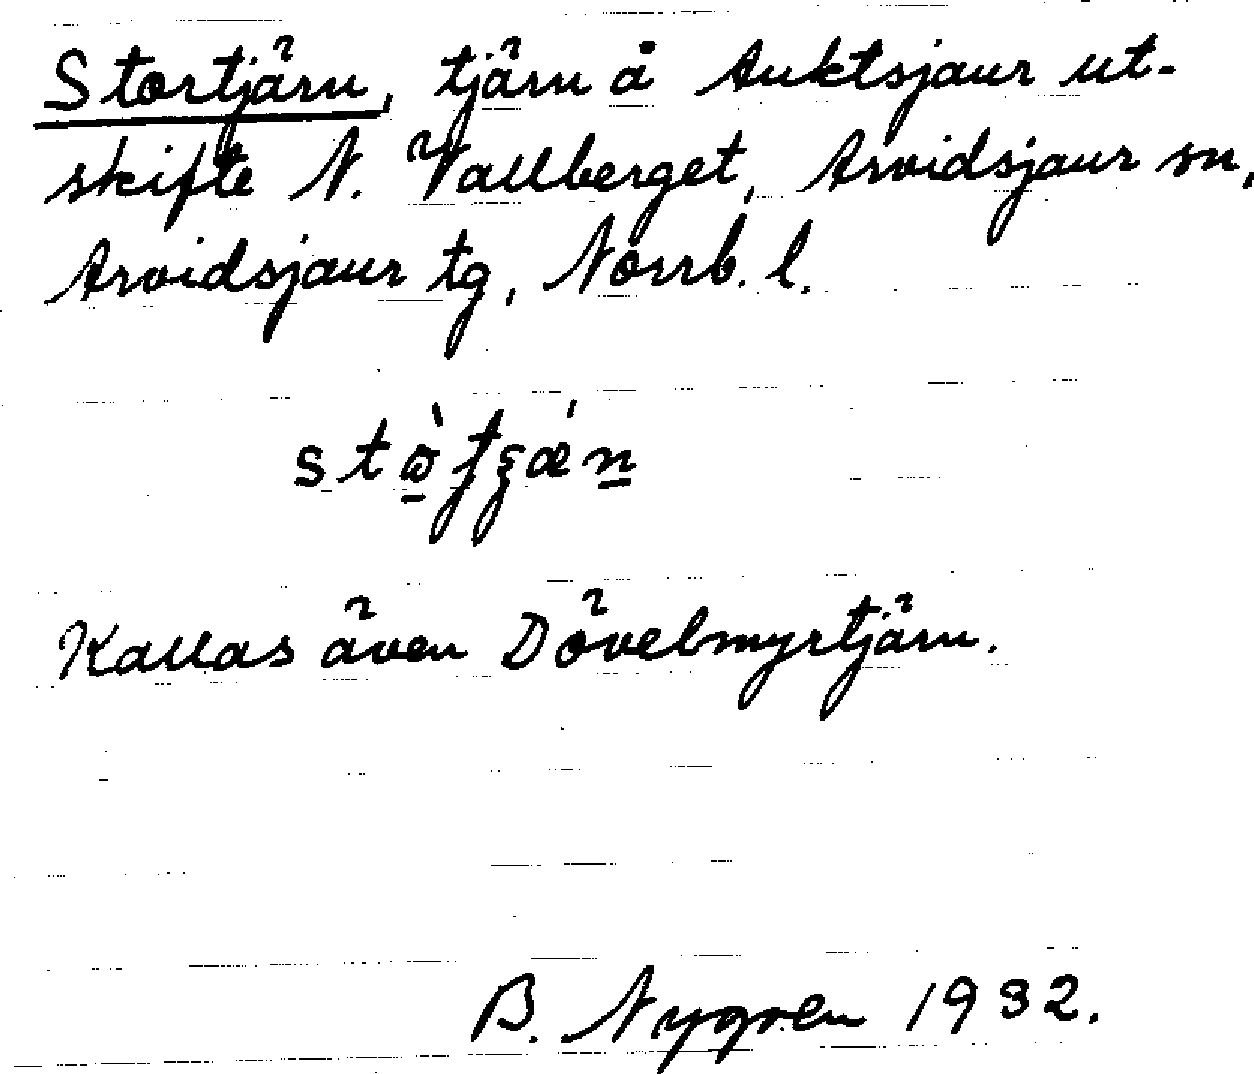 Stortjärn, tjärn å Auktsjaur ut-
skifte N. Vallberget, Arvidsjaur sn,
Arvidsjaur tg, Norrb. l.
Kallas även Dövelmyrtjärn.
B. Nygren 1932.